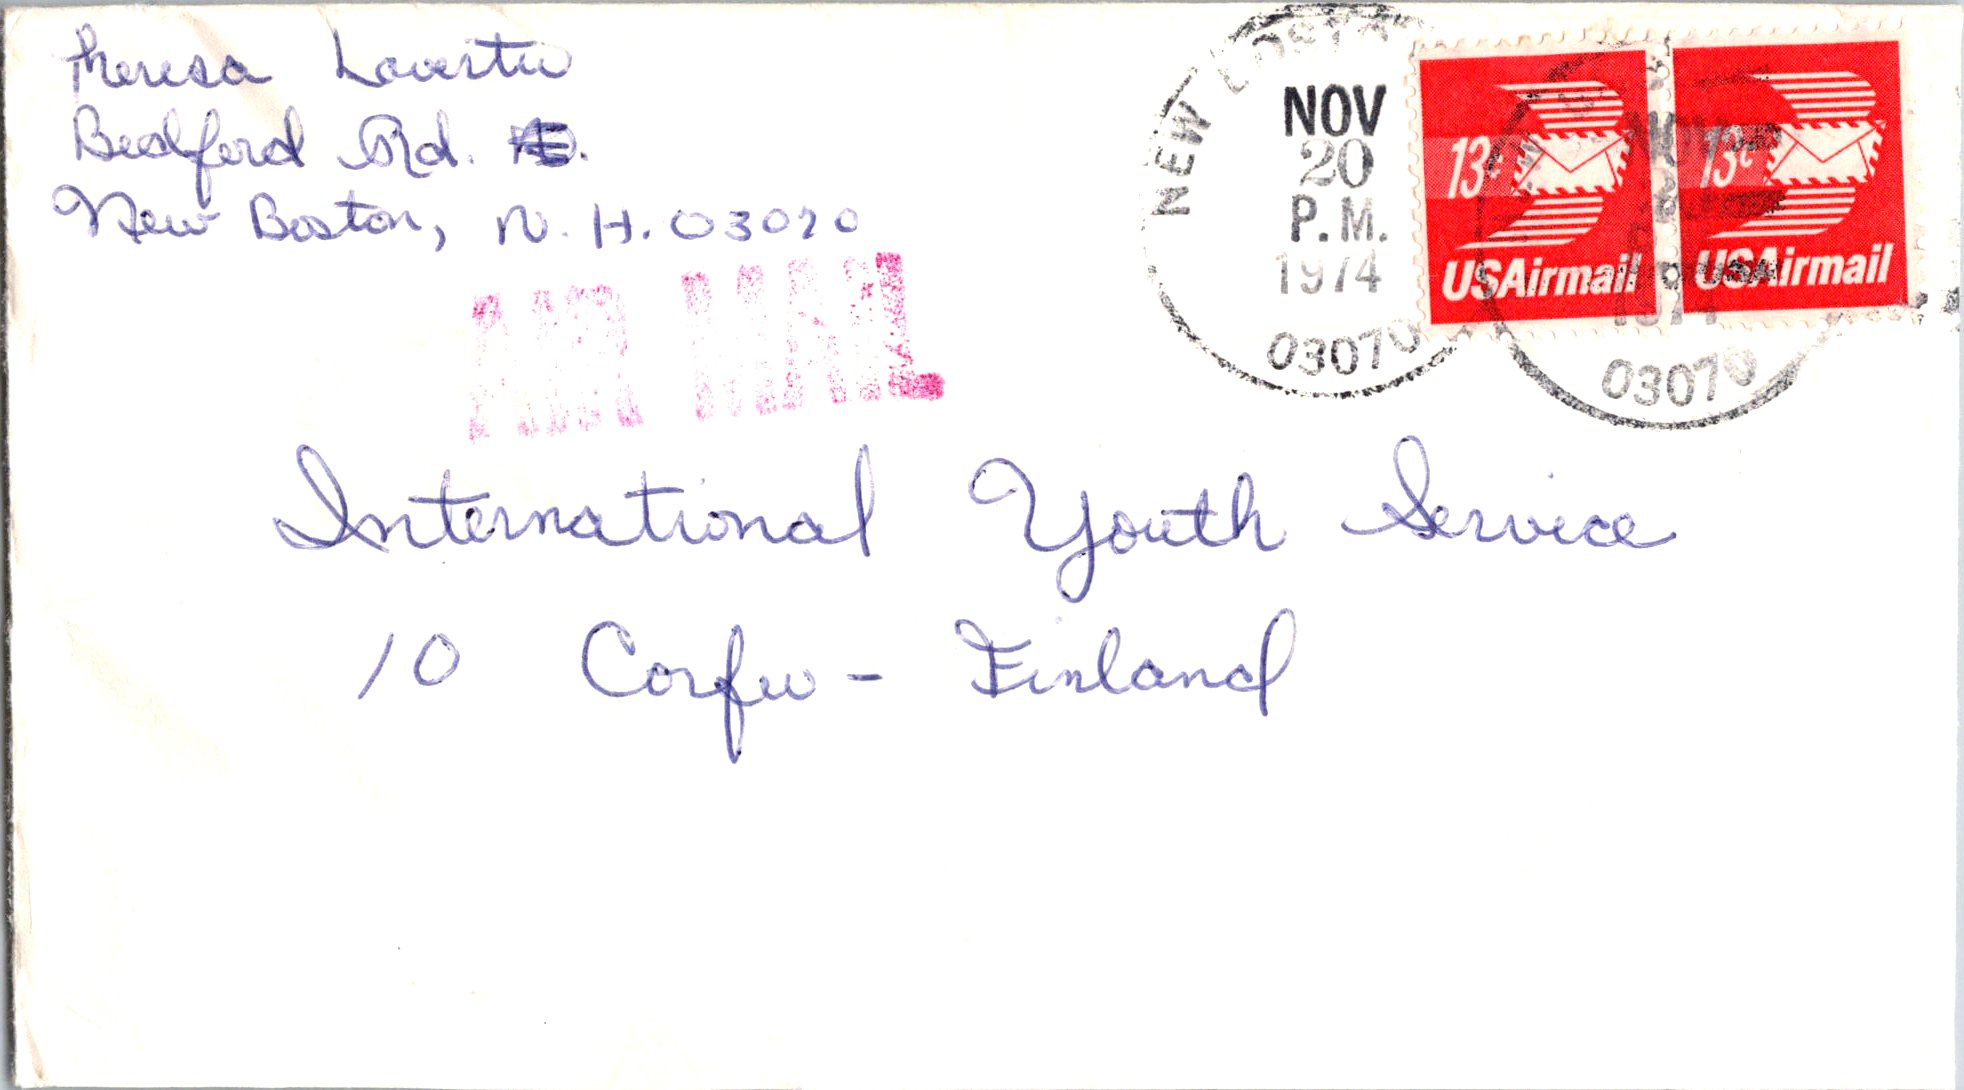 Theresa Lavertu
Bedford Rd.
New Boston, N.H. 03070
AIR MAIL
NEW BOSTON
NOV
20
P.M.
1974
03070
13c
USAirmail
13c
USAirmail
NOV
1974
03070
International Youth Service
10 Corfu - Finland